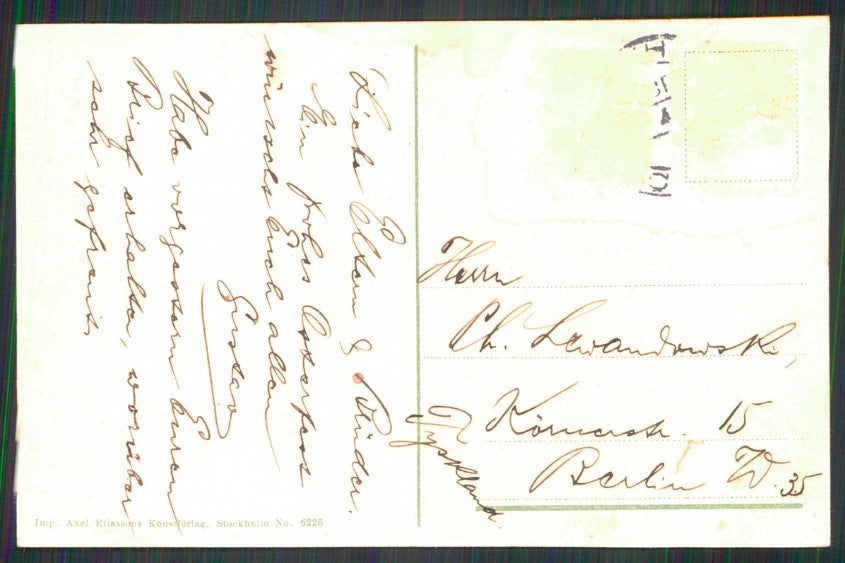 Liebe Eltern & Kinder.
Ein frohes Osterfest
wünscht Euch allen
Gustav
Habe vorgestern Euren
Brief erhalten, worüber
sehr gefreut.
Herrn
Ch. Lewandowski,
Körnerstr. 15
Berlin W. 35
Tyskland.
Imp. Axel Eliassons Konstförlag, Stockholm No. 6226